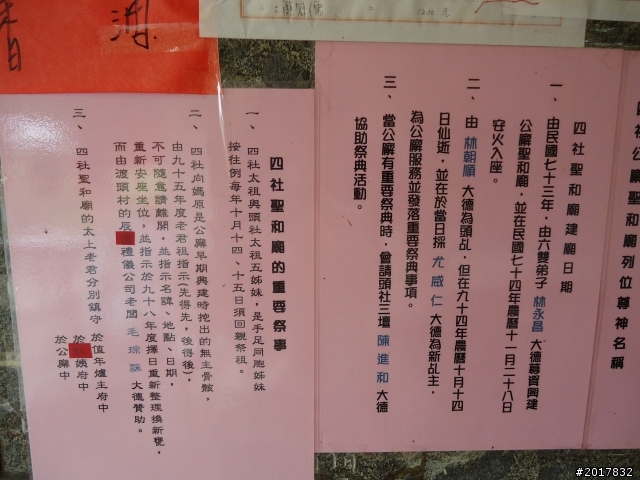 四社聖和廟列位尊神名稱
四社聖和廟建廟日期
一、由民國七十三年，由六雙弟子 林永昌 大德募資興建
公廨聖和廟，並在民國七十四年農曆十一月二十八日
安火入座。
二、由 林朝順 大德為頭乩，但在九十四年農曆十月十四
日仙逝，並在於當日採 尤威仁 大德為新乩主，
為公廨服務並發落重要祭典事項。
三、當公廨有重要祭典時，會請頭社三壇 陳進和 大德
協助祭典活動。
四社聖和廟的重要祭事
一、四社太祖與頭社太祖五姊妹，是手足同胞姊妹
按往例每年十月十四、十五日須回親祭祖。
二、四社向媽原是公廨早期興建時挖出的無主骨骸，
由九十五年度老君祖指示(先得先，後得後)，
不可隨意請離開，並指示名諱、地點、日期，
重新安座坐位，並指示於九十八年度擇日重新整理換新甕，
而由渡頭村的辰 禮儀公司老闆 毛琮 大德贊助。
三、四社聖和廟的太上老君分別鎮守 於值年爐主府中
於 姨府中
於公廨中
1200元
#2017832